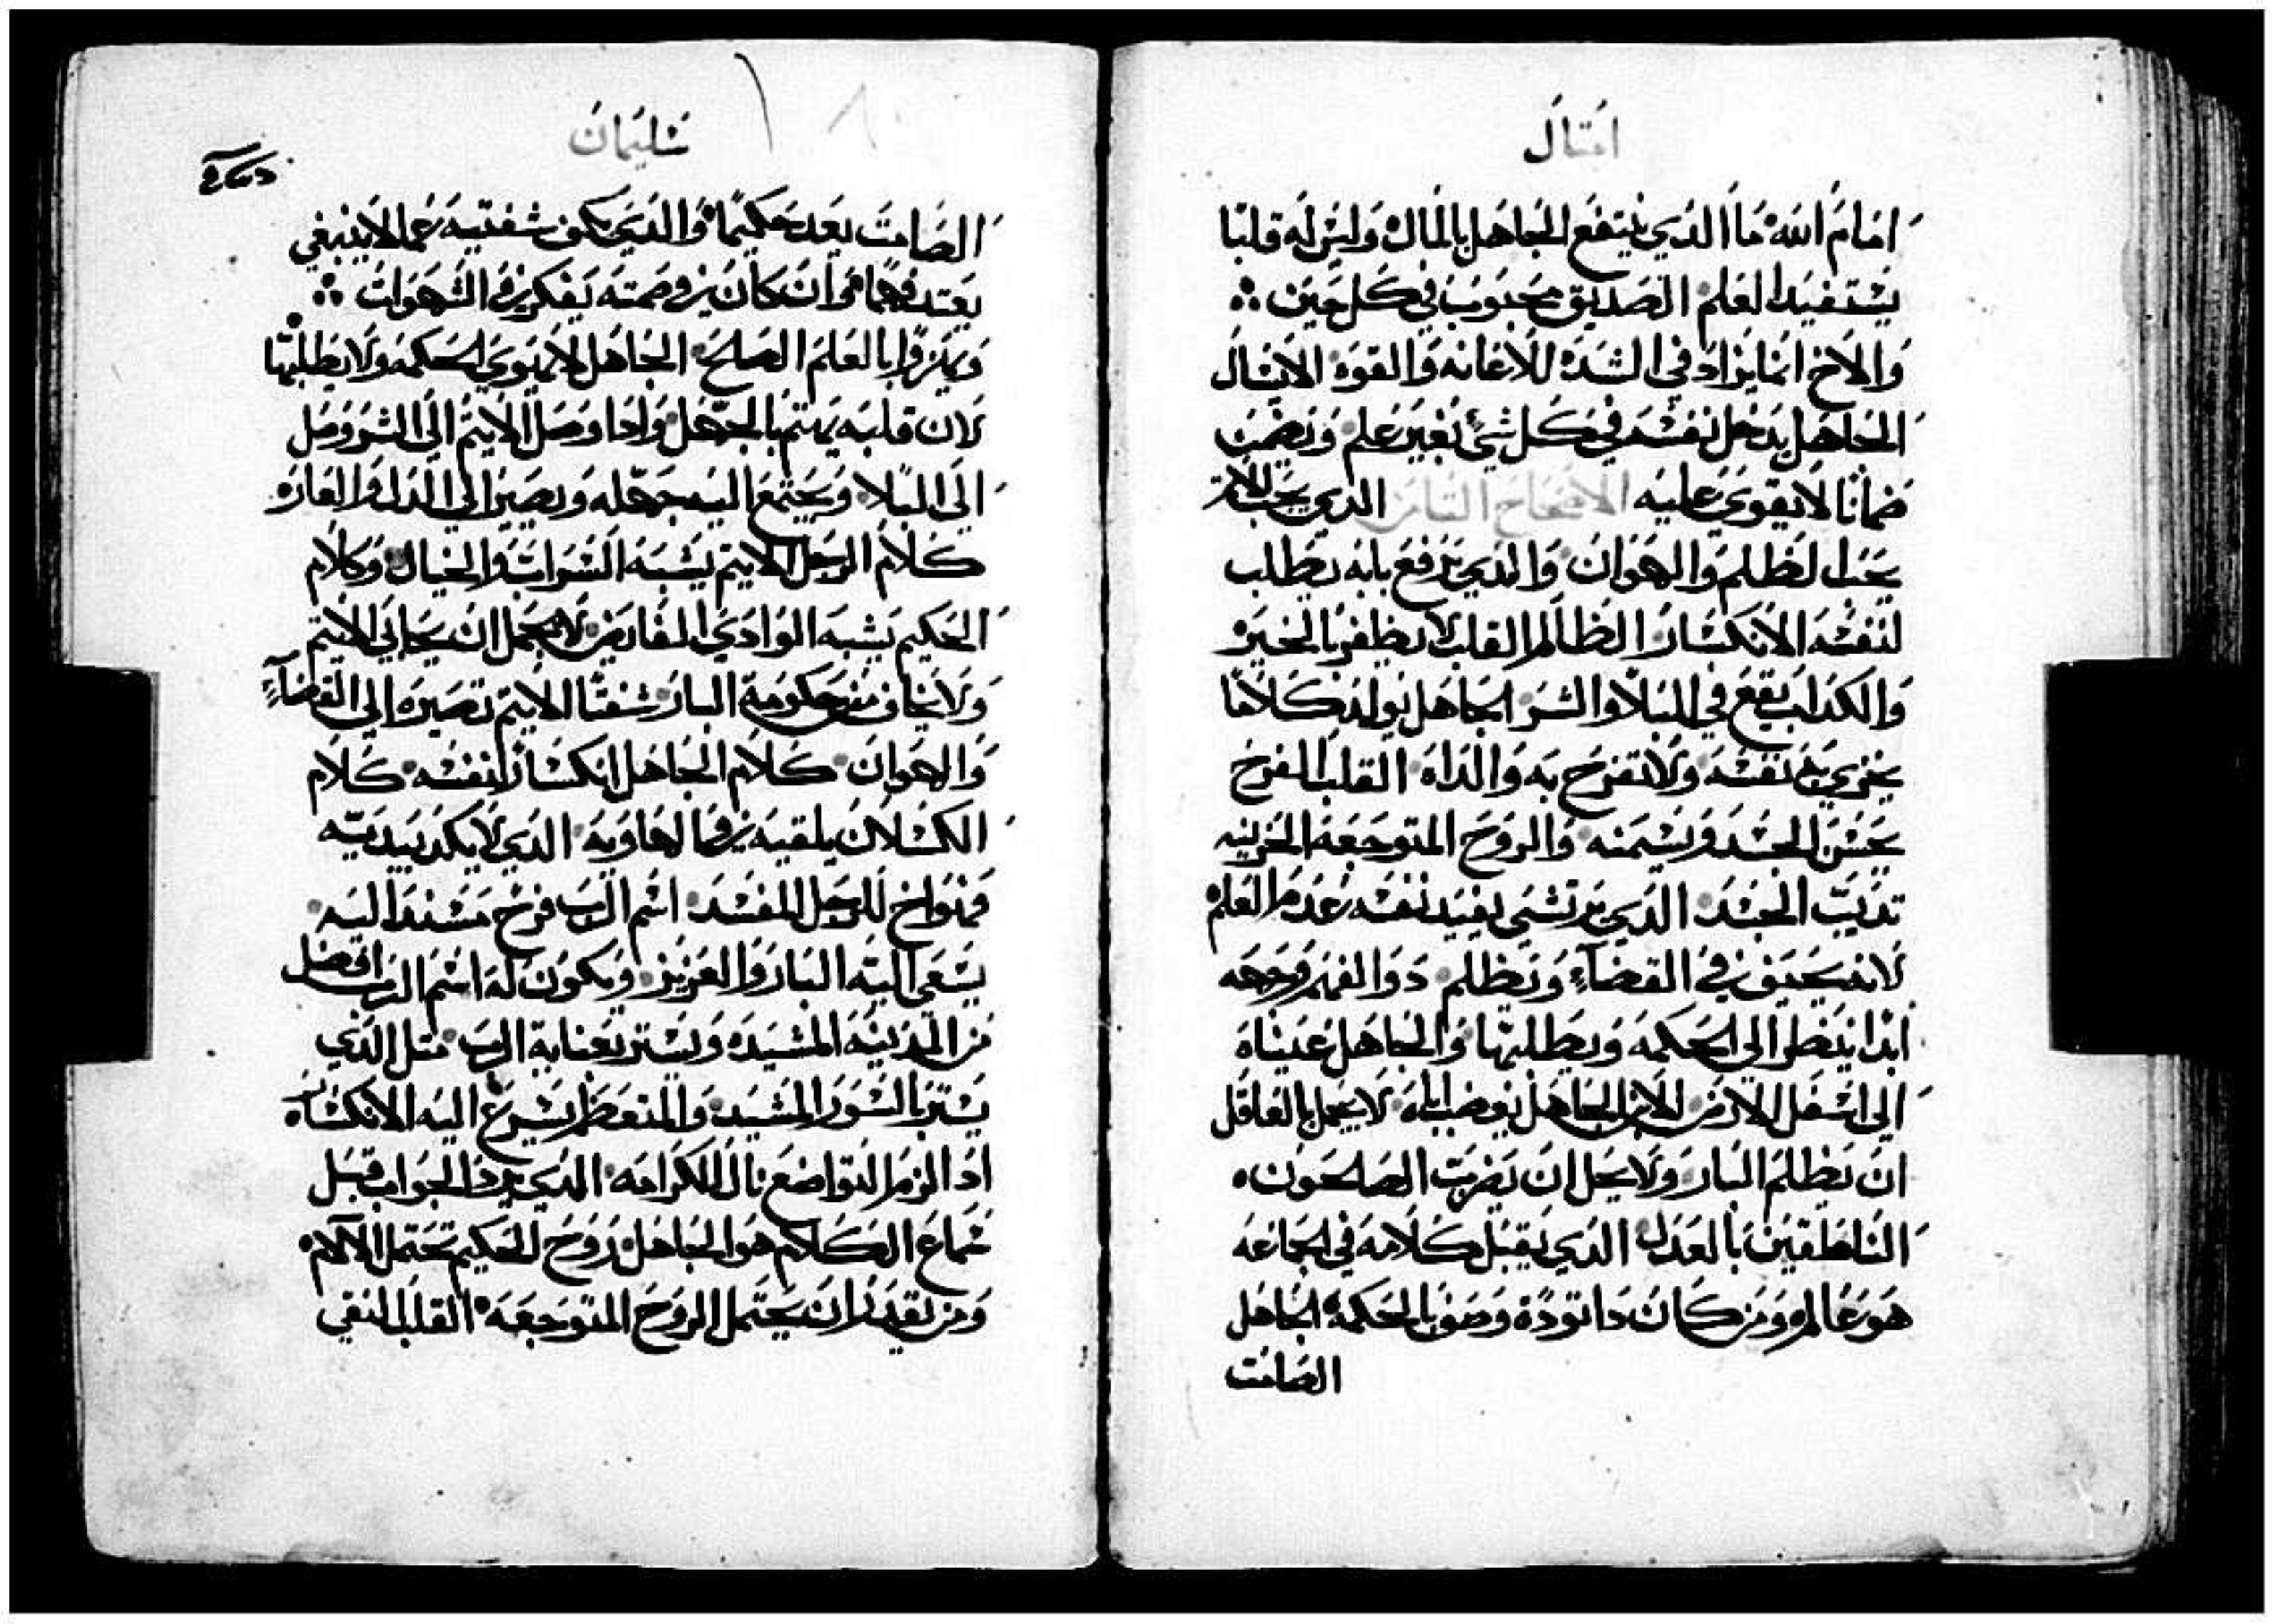 امتال
امام الله ما الدي ينتفع الجاهل بالمال وليس له قلبا
يستفيد العلم الصديق محبوب في كل حين
والاخ انما يراد في الشده للاعانه والقوه الانسان
الجاهل يدخل نفسه في كل شي بغير علم ويضمن
ضمانا لايقوي عليه الاصحاح التامن الدي يحب الاتم
يحب الظلم والهوان والدي يرفع بابه يطلب
لنفسه الانكسار الظالم القلب لا يظفر بالخيره
والكداب يقع في البلا والشر الجاهل يولد كلاما
يخزي به نفسه ولا تفرح به والداه القلب الفرح
يحسن الجسد ويسمنه والروح المتوجعة الحزينه
تديب الجسد الدي يرتشي يفيد نفسه عدم العلم
لانه يحيف في القضاء ويظلم دوا الفهم وجهه
ابدا ينظر الي الحكمه ويطلبها والجاهل عيناه
الي اسفل الارض الابن الجاهل يغضب اباه لا يجمل بالعاقل
ان يظلم البار ولا يحل ان يضرب الصالحون
الناطقين بالعدل الدي يقبل كلامه في الجماعه
هو عالم ومن كان دا تودة وصف بالحكمة الجاهل
الصامت
سليمان
الصامت يعد حكيما والدي يكف شفتيه عما لاينبغي
يعتد فهما وان كان في صمته يفكر في الشهوات
ويهزوا بالعلم الصالح الجاهل لا يهوي الحكمه ولا يطلبها
لان قلبه يهتم بالجهل وادا وصل الاتيم الي الشر وصل
الي البلا ويجتمع اليه جهله ويصير الي الدل والعاره
كلام الرجل الاتيم يشبه السراب والخيال وكلام
الحكيم يشبه الوادي الفايض لا يجمل ان يحابي الاتيم
ولا يخاف من حكومة البار شفتا الاتيم تصيره الي القضاء
والهوان كلام الجاهل انكسارا لنفسه كلام
الكسلان يلقيه في الهاويه الدي لا يكد بيديه
فهو اخ للرجل المفسد اسم الرب فرح مسندا اليه
يسعي اليه البار والعزيز ويكون له اسم الرب افضل
من المدينه المشيده ويستر بعناية الرب متل الدي
يستر بالسور المشيد والمتعظم يسرع اليه الانكسار
ادا لزم التواضع نال الكرامه الدي يرد الجواب قبل
سماع الكلام هو الجاهل روح الحكيم تحتمل الالام
ومن يقدر ان يحتمل الروح المتوجعه القلب النقي